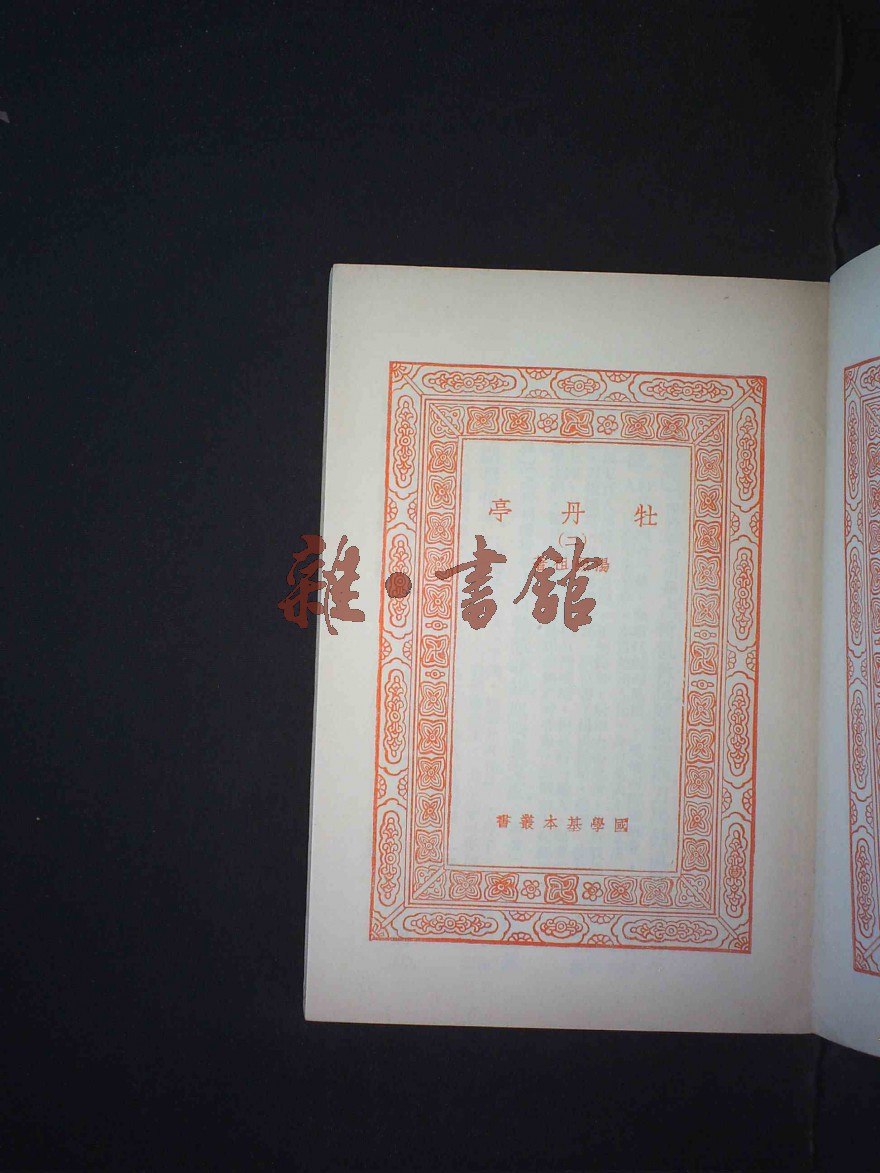 牡丹亭
(二)
雜·書館
國學基本叢書